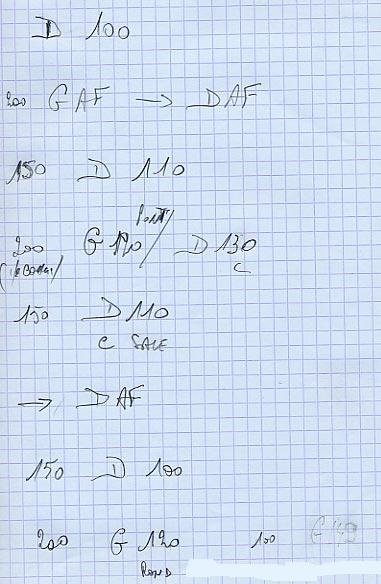 D 100
200 G AF → D AF
150 D 110
PONT/
200 G 120/ D 130
C
150 D 110
C SALE
→ D AF
150 D 100
200 G 120 100 G 140
ROND